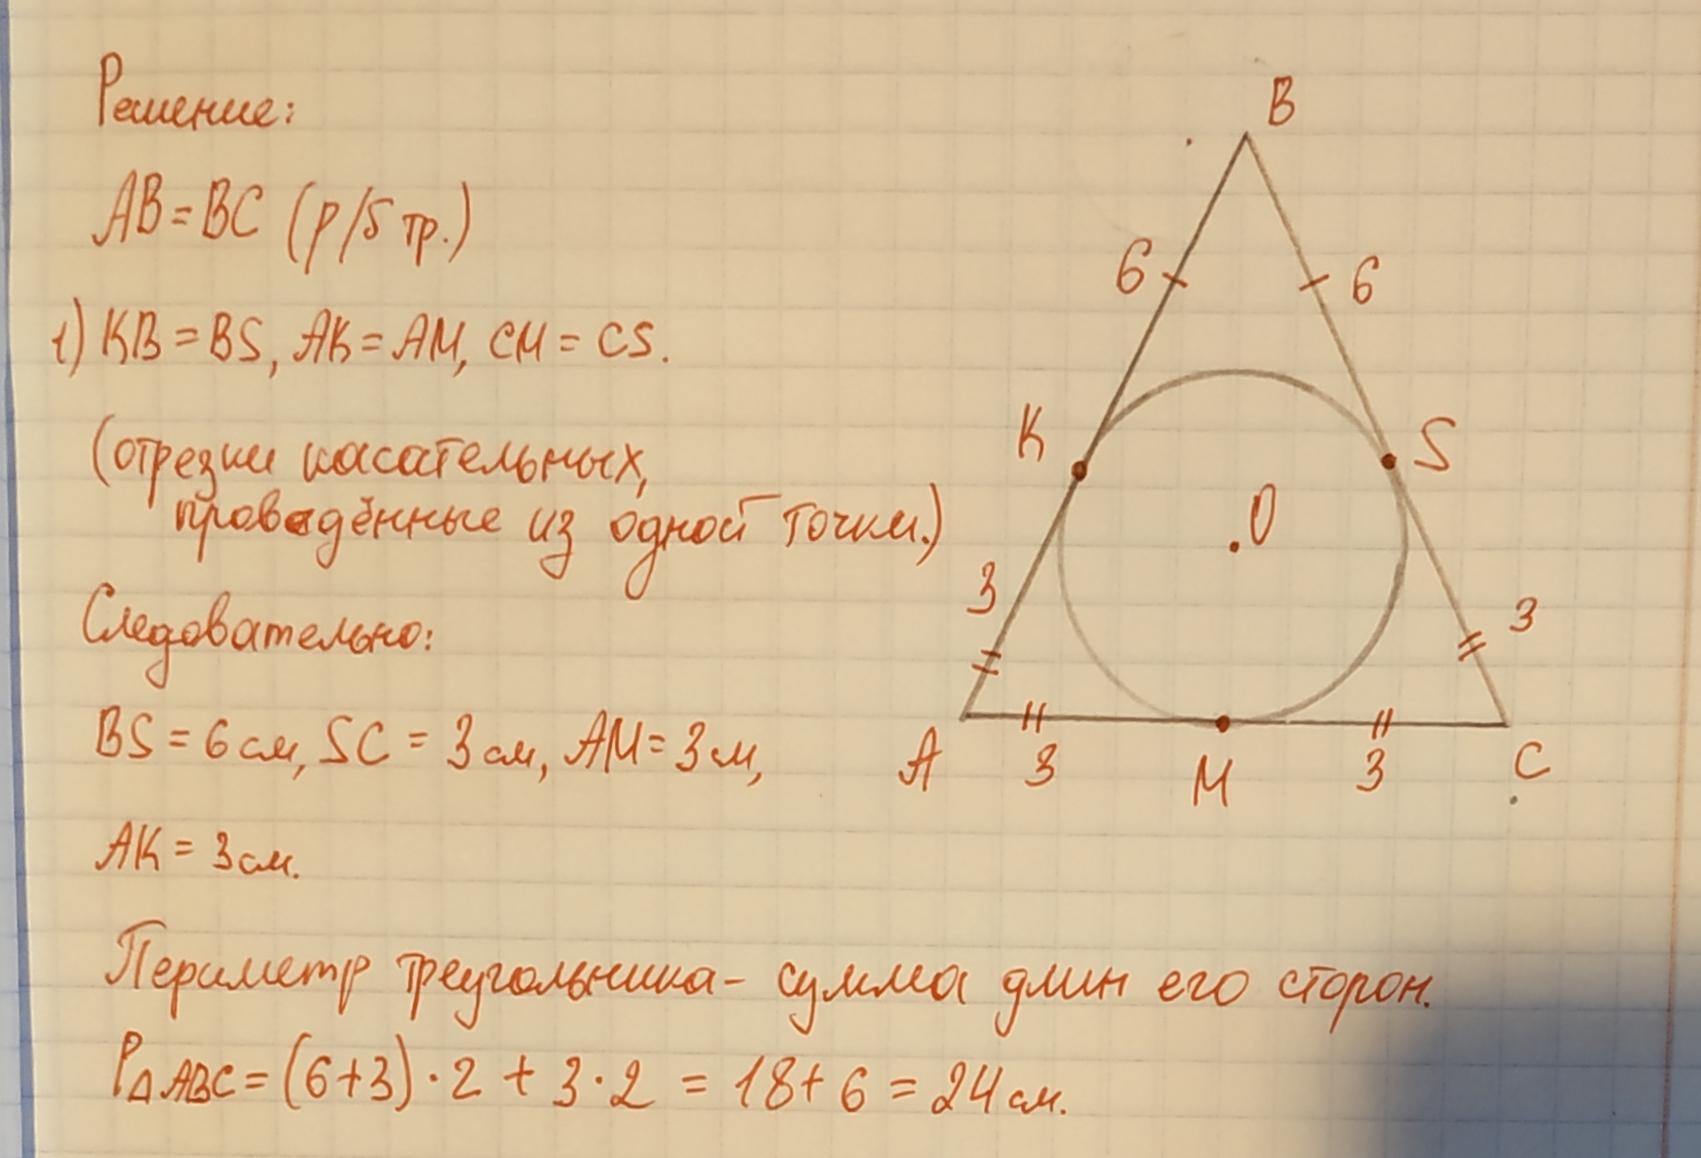 Решение:
AB = BC (р/б тр.)
1) KB = BS, AK = AM, CM = CS.
(отрезки касательных,
проведённые из одной точки.)
Следовательно:
BS = 6 см, SC = 3 см, AM = 3 м,
AK = 3 см.
Периметр треугольника - сумма длин его сторон.
P△ABC = (6+3)·2 + 3·2 = 18 + 6 = 24 см.
B
6
6
K
S
O
3
3
A
3
M
3
C